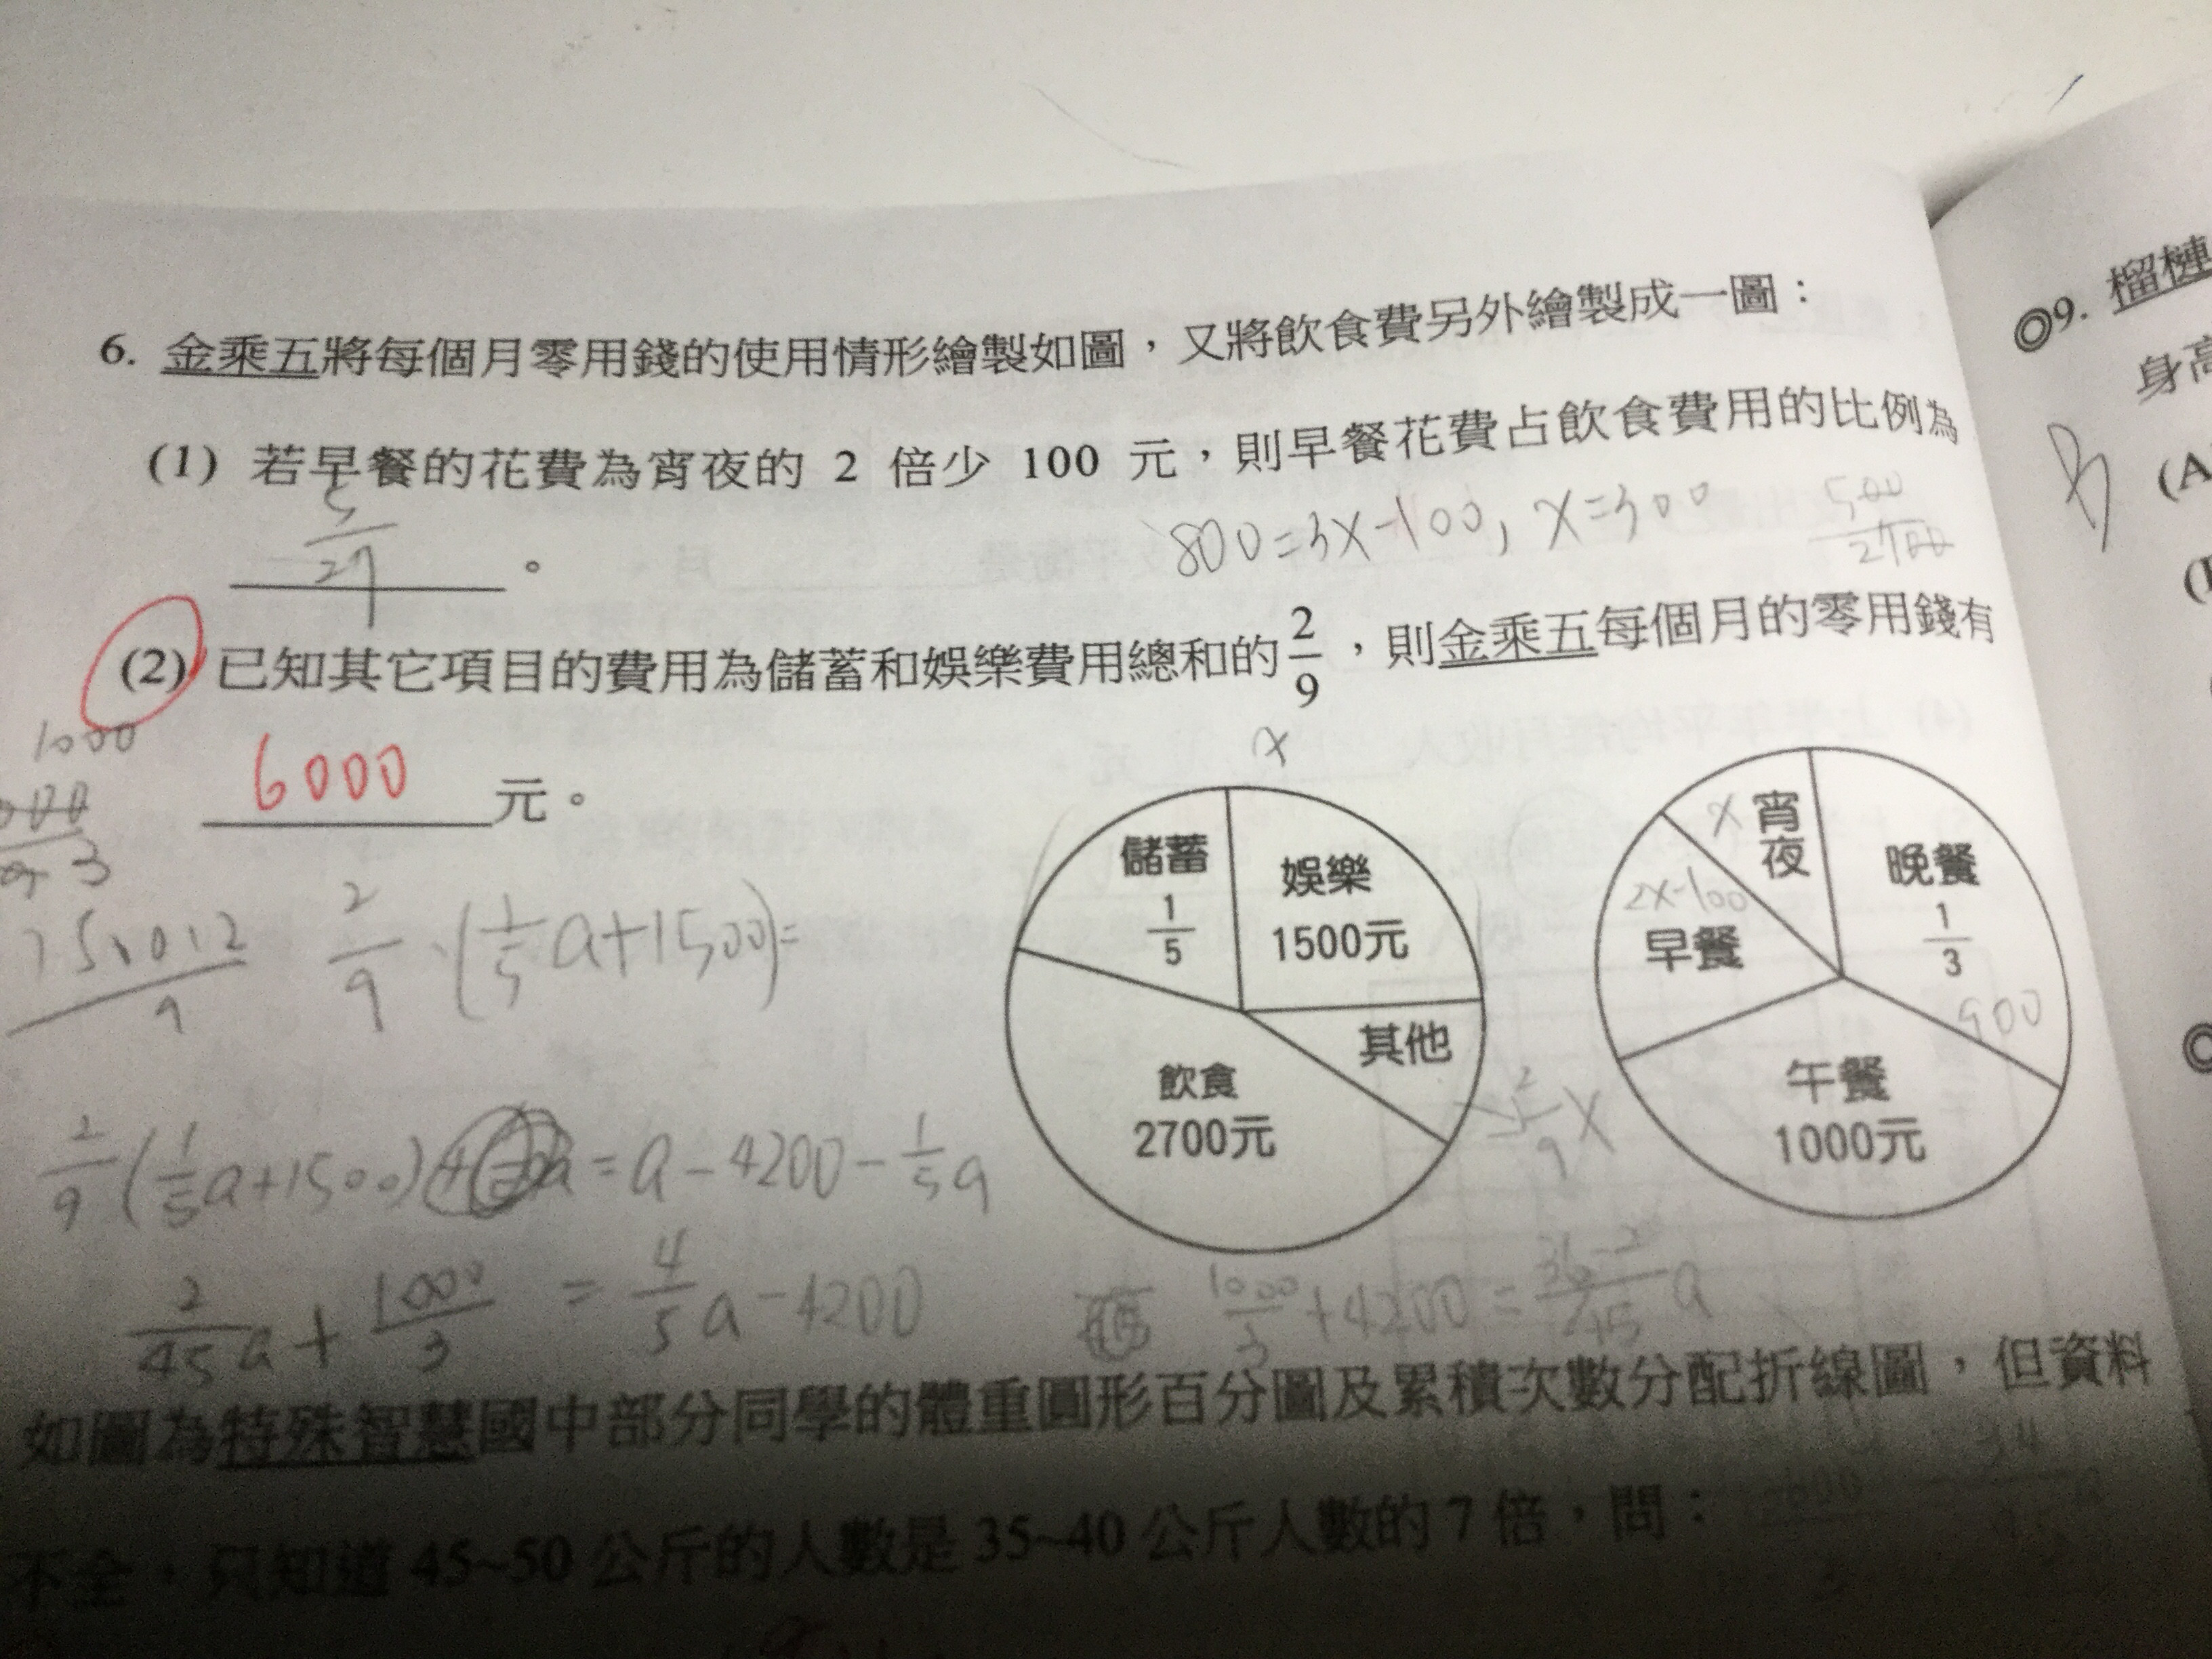 6. 金乘五將每個月零用錢的使用情形繪製如圖，又將飲食費另外繪製成一圖：
(1) 若早餐的花費為宵夜的 2 倍少 100 元，則早餐花費占飲食費用的比例為
5/27 。
800=3x-100, x=300
500/2700
(2) 已知其它項目的費用為儲蓄和娛樂費用總和的 2/9，則金乘五每個月的零用錢有
6000 元。
1000
x
儲蓄 1/5
娛樂 1500元
其他
飲食 2700元
x 宵夜
晚餐 1/3
900
2x-100
早餐
午餐 1000元
2/9 · (1/5 a+1500)=
2/9 (1/5 a+1500) = a-4200-1/5 a
2/45 a + 1000/3 = 4/5 a-4200
1000/3 +4200 = 36-2/45 a
如圖為特殊智慧國中部分同學的體重圓形百分圖及累積次數分配折線圖，但資料
不全，只知道 45~50 公斤的人數是 35~40 公斤人數的 7 倍，問：
◎9. 榴槤
身高
(A